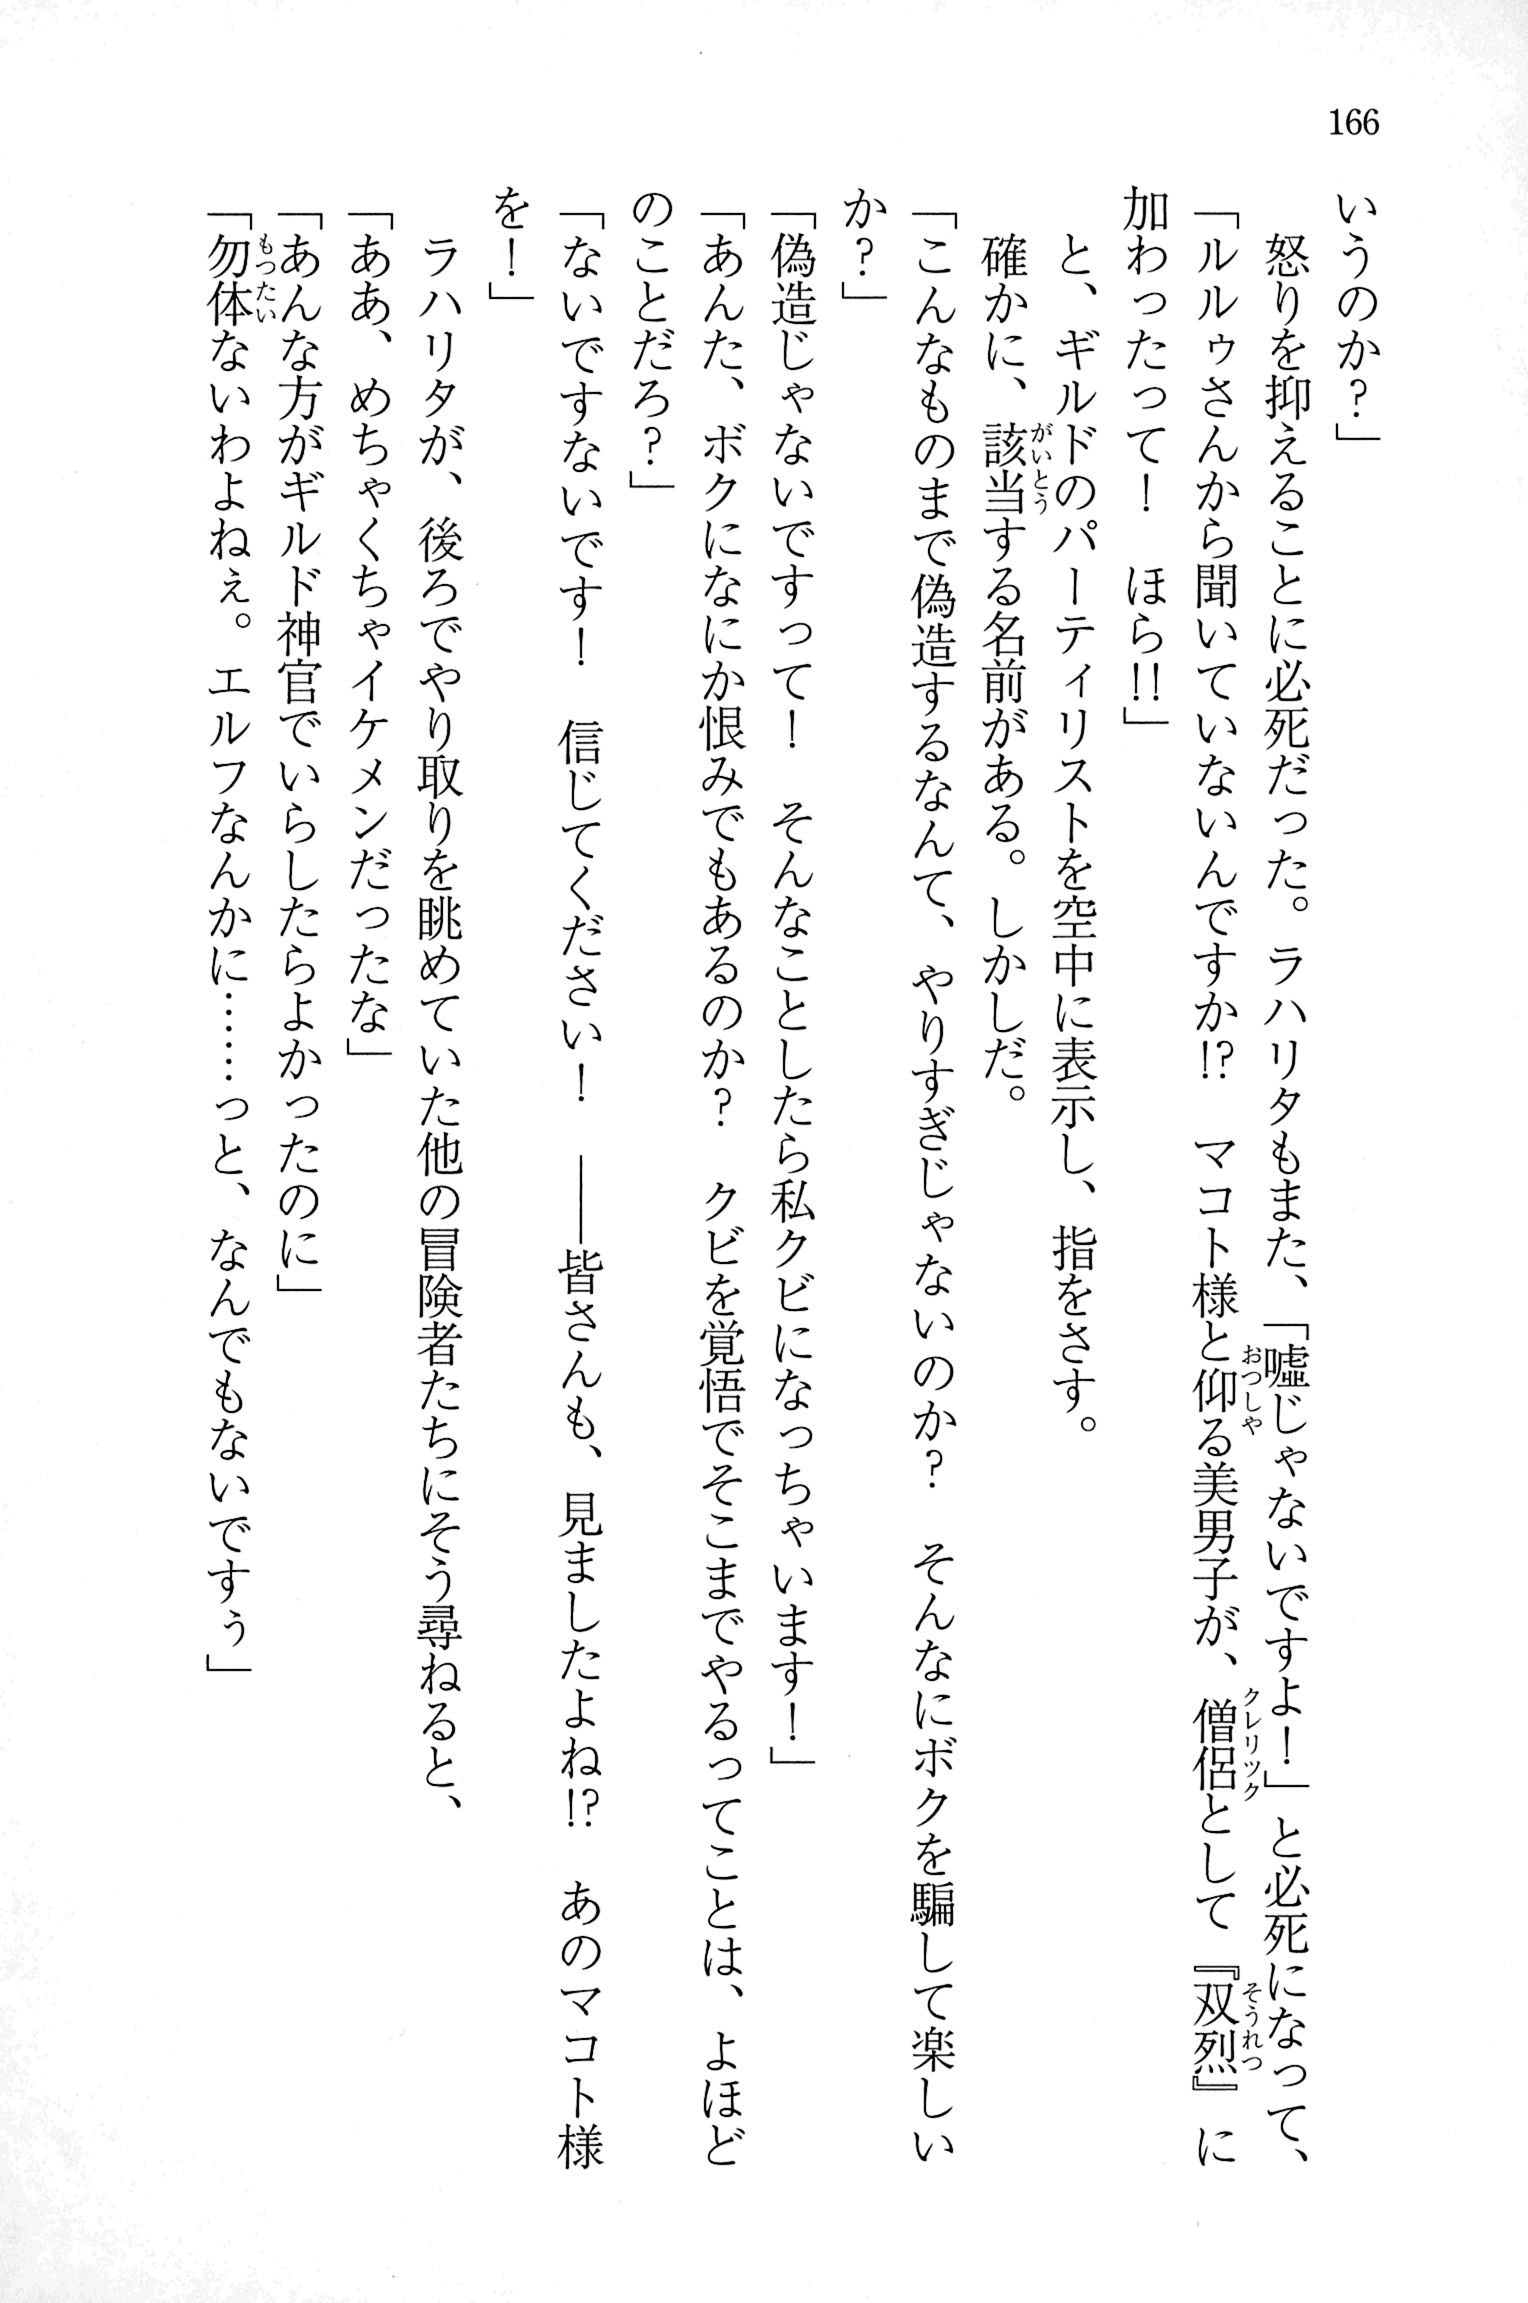 166
いうのか？」
　怒りを抑えることに必死だった。ラハリタもまた、「嘘じゃないですよ！」と必死になって、
「ルルゥさんから聞いていないんですか!?　マコト様と仰る美男子が、僧侶として『双烈』に
加わったって！　ほら!!」
　と、ギルドのパーティリストを空中に表示し、指をさす。
　確かに、該当する名前がある。しかしだ。
「こんなものまで偽造するなんて、やりすぎじゃないのか？　そんなにボクを騙して楽しい
か？」
「偽造じゃないですって！　そんなことしたら私クビになっちゃいます！」
「あんた、ボクになにか恨みでもあるのか？　クビを覚悟でそこまでやるってことは、よほど
のことだろ？」
「ないですないです！　信じてください！　――皆さんも、見ましたよね!?　あのマコト様
を！」
　ラハリタが、後ろでやり取りを眺めていた他の冒険者たちにそう尋ねると、
「ああ、めちゃくちゃイケメンだったな」
「あんな方がギルド神官でいらしたらよかったのに」
「勿体ないわよねぇ。エルフなんかに……っと、なんでもないですぅ」